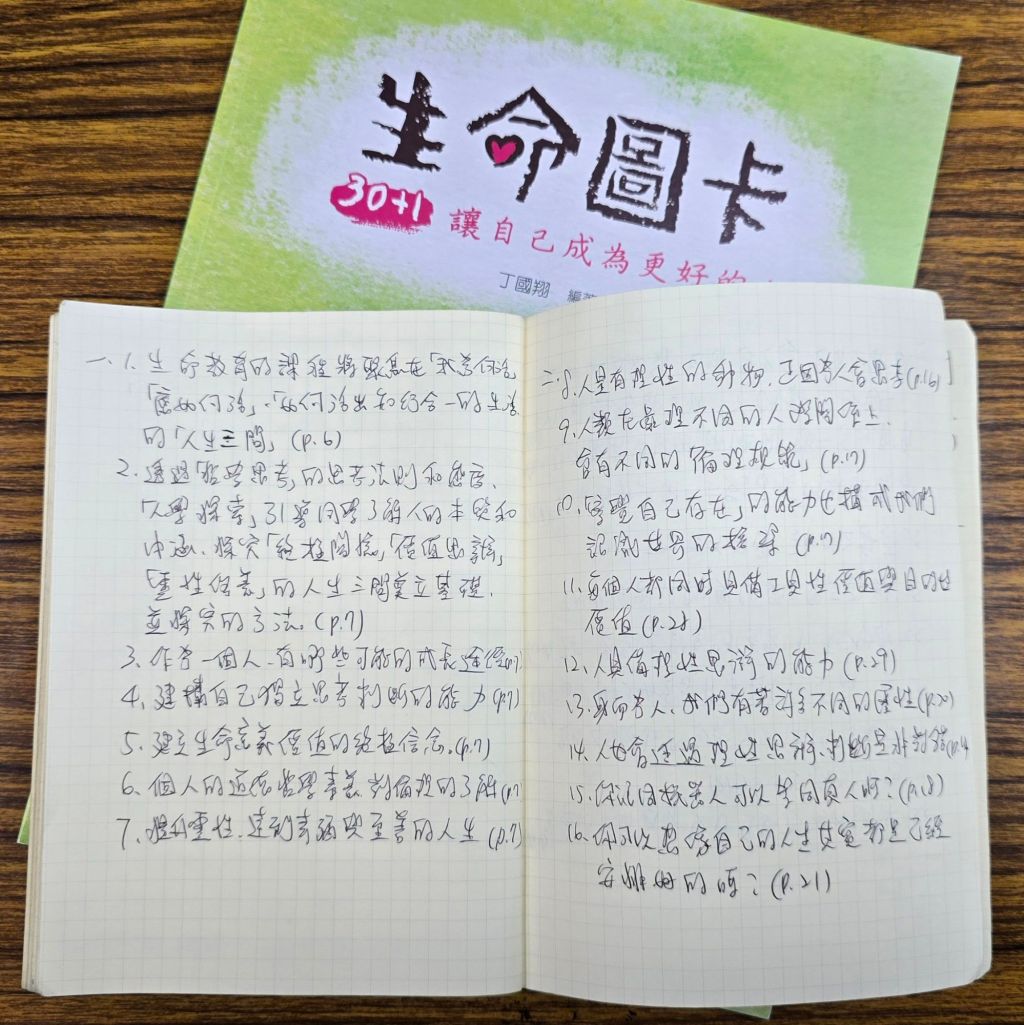 生命圖卡
30+1 讓自己成為更好的
丁國翔 編著
一、1. 生命教育的課程將聚焦在「我為何活」
「應如何活」、「如何活出知行合一的生活」
的「人生三問」(p.6)
2. 透過「哲學思考」的思考法則和態度、
「人學探索」引導同學了解人的本質和
內涵、探究「終極關懷」「價值思辨」
「靈性修養」的人生三問奠立基礎,
並探究的方法。(p.7)
3. 作為一個人,有哪些可能的成長途徑(p.7)
4. 建構自己獨立思考判斷的能力(p.7)
5. 建立生命意義價值的終極信念。(p.7)
6. 個人的道德哲學素養,對倫理的了解(p.7)
7. 提升靈性、達到幸福與至善的人生(p.7)
二、8. 人是有理性的動物,正因為人會思考(p.16)
9. 人類在處理不同的人際關係上,
會有不同的「倫理規範」(p.17)
10.「察覺自己存在」的能力也構成我們
認識世界的框架 (p.17)
11. 每個人都同時具備工具性價值與目的性
價值(p.28)
12. 人具備理性思辨的能力(p.29)
13. 身而為人,我們有著許多不同的屬性(p.20)
14. 人也會透過理性思辨,判斷是非對錯
15. 你認同機器人可以等同真人嗎?(p.18)
16. 你可以想像自己的人生其實都是已經
安排好的嗎?(p.21)